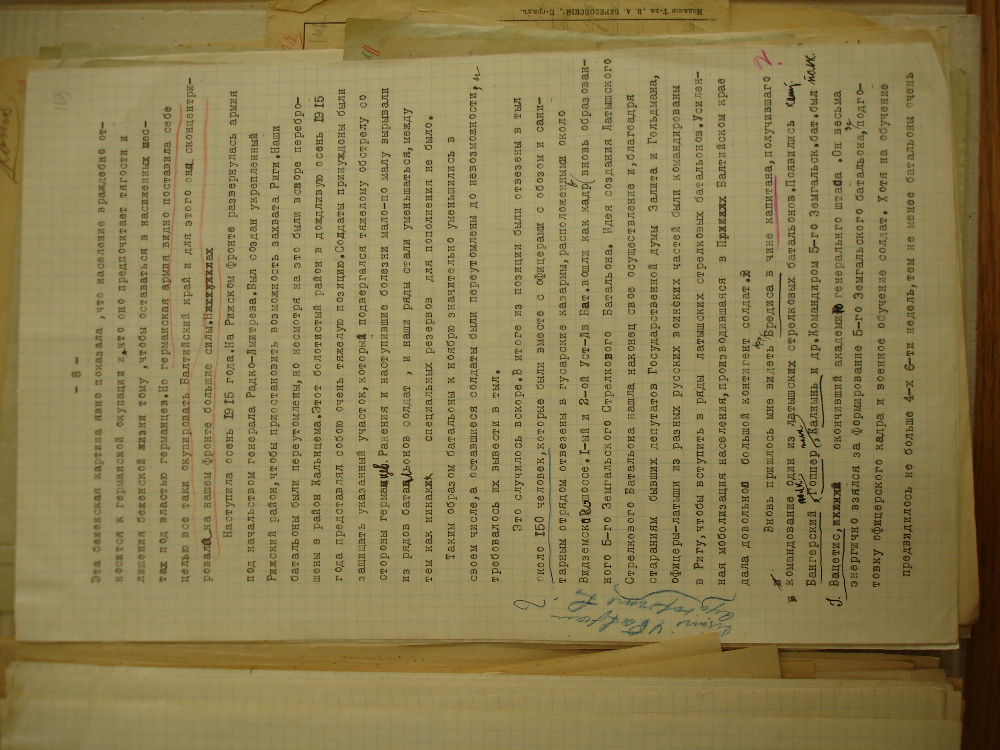 - 8 -
Эта беженская картина явно показала ,что население враждено от-
носится к германской окупации и,что оно предпочитает тягости и
лишения беженской жизни тому ,чтобы оставаться в насиженных мес-
тах под властью германцев.Но германская армия видно поставила себе
целью все таки окупировать Балтийский край и для этого она сконцентри-
ровала на нашем фронте большие силы.
Наступила осень I9I5 года.На Рижском фронте развернулась армия
под начальством генерала Радко-Дмитрева.Был создан укрепленный
Рижский район,чтобы приостановить возможность захвата Риги.Наши
батальоны были переутомлены,но несмотря на это были вскоре перебро-
шены в район Кальнцема.Этот болотистый район в дождливую осень I9I5
года представлял собою очень тяжелую позицию.Солдаты принуждены были
защищать указанный участок,который подвергался тяжелому обстрелу со
стороны германцев.Ранения и наступившие болезни мало-по малу вырывали
из рядов батальонов солдат , и наши ряды стали уменьшаться,между
тем как никаких специальных резервов для пополнения не было.
Таким образом батальоны к ноябрю значительно уменьшились в
своем числе,а оставшиеся солдаты были переутомлены до невозможности, и
требовалось их вывести в тыл.
Это случилось вскоре.В итоге из позиции были отвезены в тыл
около I50 человек,которые были вместе с офицерами с обозом и сани-
тарным отрядом отвезены в гусарске казармы,расположенные около
Видземского шоссе.I-ый и 2-ой Уст-Дв Бат.вошли как кадр вновь образован-
ного 5-го Земгальского Стрелкового Батальона. Идея создания Латышского
Стрелкового Батальона нашла наконец свое осуществление и,благоадря
стараниям бывших депутатов Государственной думы Залита и Гольдмана,
офицеры-латыши из разных русских воинских частей были командированы
в Ригу,чтобы вступить в ряды латышских стрелковых батальонов.Усилен-
ная мобилизация населения,производившаяся в Балтийском крае
дала довольно большой контигент солдат.
Вновь пришлось мне видеть Бредиса в чине капитана,получившаго
в командование один из латышских стрелковых батальонов.Появились кап.
Бангерский, Гопер, Калнынь и др.Командиром 5-го Земгальск.бат.был полк.
I. Вацетис, окончивший академию генеральнго штаба.Он весьма
энергично взялся за формирование 5-го Земгальского батальона,за подго-
товку офицерского кадра и военное обучение солдат. Хотя на обучение
предвиделись не больше 4-х 6-ти недель,тем не менее батальоны очень
Издание Т-ва „В. А. БЕРЕЗОВСКІЙ", П-градъ.